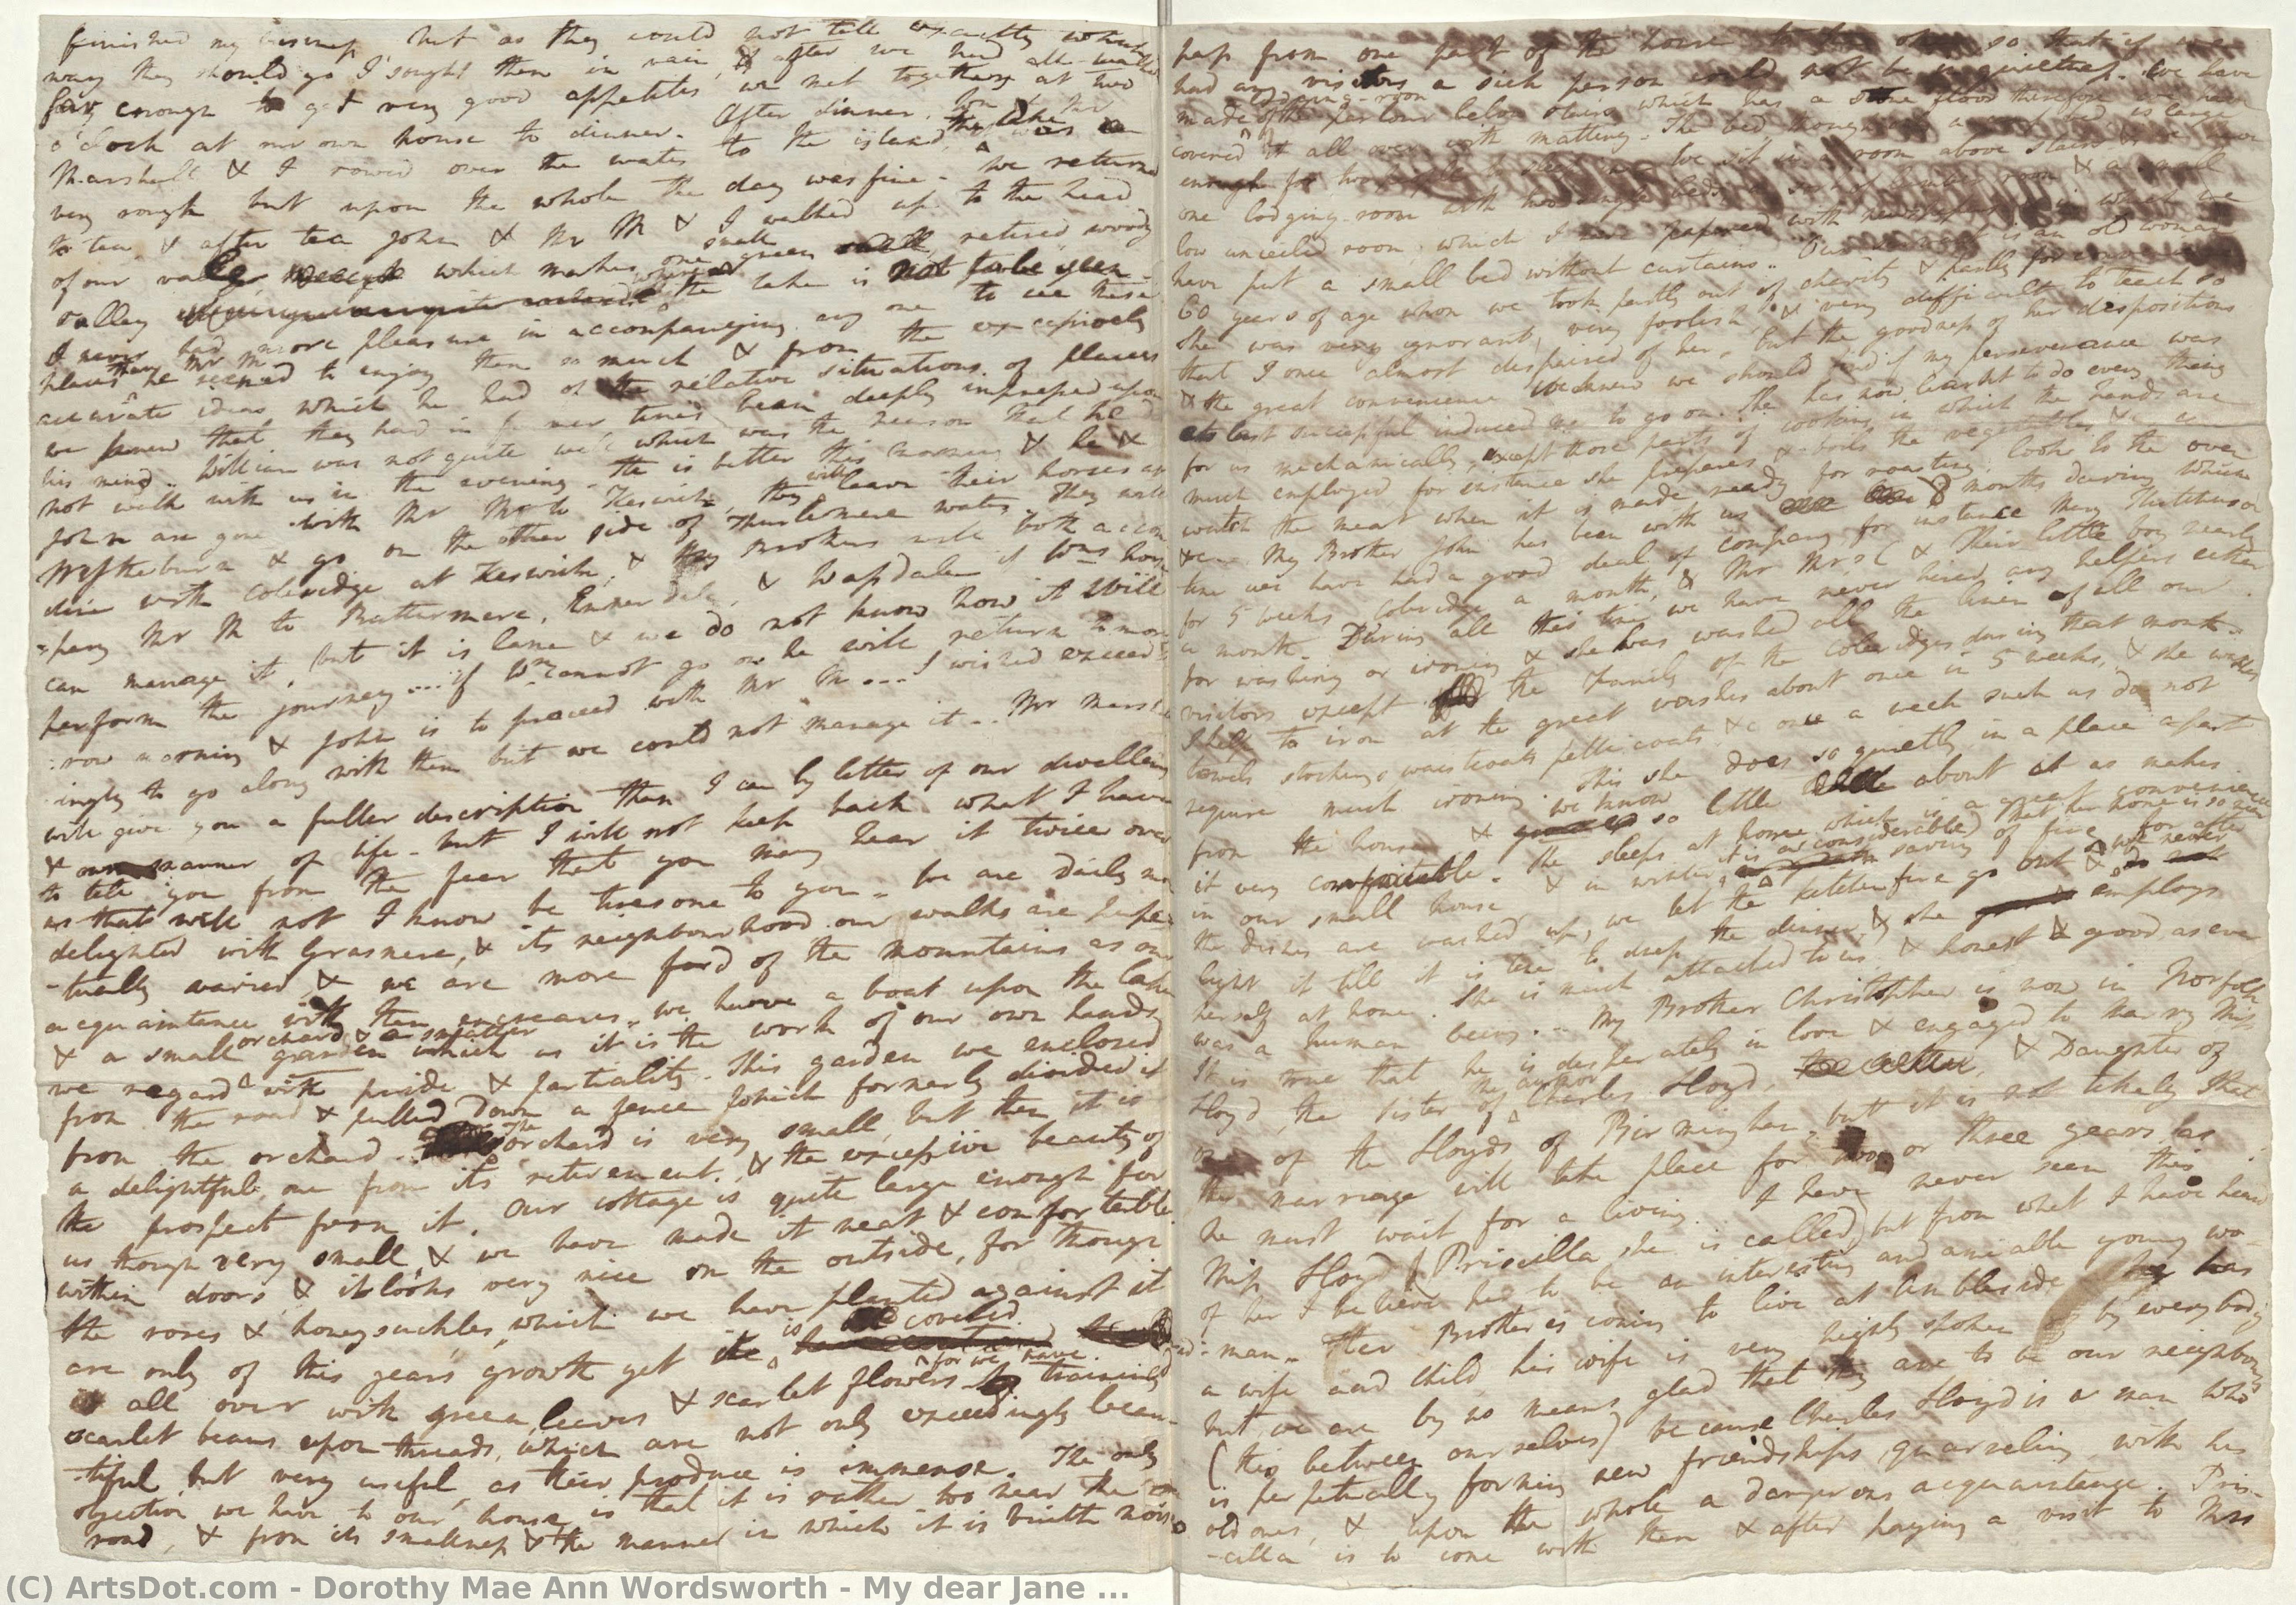 finished my business, but as they could not tell exactly which
way they should go I sought them in vain, & after we had all walked
far enough to get very good appetites we met together at two
o'clock at our own house to dinner. After dinner, John & Mr
Marshall & I rowed over the water to the island, the lake was
very rough but upon the whole the day was fine - we returned
to tea, & after tea John & Mr M & I walked up to the head
of our valley which makes one small green retired, woody
valley the lake is not to be seen -
I never had more pleasure in accompanying any one to see these
places than Mr M he seemed to enjoy them so much & from the exceedingly
accurate ideas which he had of the relative situations of places
we found that they had in former times been deeply impressed upon
his mind. William was not quite well which was the reason that he did
not walk with us in the evening - he is better this morning & he &
John are gone with Mr M to Keswick, they will leave their horses at
Wytheburn & go on the other side of Thirlemere water. They will
dine with Coleridge at Keswick, & my Brothers will both accom
=pany Mr M to Buttermere, Ennerdale, & Wasdale if Wms horse
can manage it, but it is lame & we do not know how it will
perform the journey .... if Wm cannot go on he will return to mor
:row morning & John is to proceed with Mr M ... I wished exceed=
ingly to go along with them but we could not manage it - Mr Marshall
will give you a fuller description than I can by letter of our dwelling
& our manner of life - but I will not keep back what I have
to tell you from the fear that you may hear it twice over
as that will not I know be tiresome to you. We are daily more
delighted with Grasmere, & its neighbourhood our walks are perpe
-tually varied, & we are more fond of the mountains as our
acquaintance with them encreases. we have a boat upon the lake
& a small orchard & a smaller garden which as it is the work of our own hands
we regard with pride & partiality. This garden we enclosed
from the road & pulled down a fence which formerly divided it
from the orchard. The orchard is very small, but then it is
a delightful one from its retirement, & the excessive beauty of
the prospect from it. Our cottage is quite large enough for
us though very small, & we have made it neat & comfortable
within doors & it looks very nice on the outside, for though
the roses & honeysuckles which we have planted against it
are only of this years growth yet it is covered
all over with green leaves & scarlet flowers for we have trained
scarlet beans upon threads, which are not only exceedingly beau-
-tiful, but very useful, as their produce is immense. The only
objection we have to our house is that it is rather too near the
road, & from its smallness & the manner in which it is built noises
pass from one part of the house to the other so that if we
had any visitors a sick person could not be in quietness. We have
made a lodging-room of the parlour below stairs which has a stone floor therefore we have
covered it all over with matting. The bed, though is large
enough for two people to sleep in. We sit in a room above stairs & we have
one lodging-room with two single beds, a sort of lumber room & a small
low unceiled room, which I have papered with newspapers & in which we
have put a small bed without curtains. Our servant is an old woman
60 years of age whom we took partly out of charity & partly for convenience
She was very ignorant, very foolish, & very difficult to teach so
that I once almost despaired of her, but the goodness of her dispositions
& the great convenience we knew we should find if my perseverance was
at last successful induced me to go on. She has now learnt to do every thing
for us mechanically, except those parts of cooking in which the hands are
much employed for instance she prepares & boils the vegetables & can
watch the meat when it is made ready for roasting, looks to the oven
&c. My Brother John has been with us 8 months during which
time we have had a good deal of company, for instance Mary Hutchinson
for 5 weeks, Coleridge a month, & Mr Mrs C & their little boy nearly
a month. During all this time we have never hired any helpers either
for washing or ironing & she has washed all the linen of all our
visitors except the family of the Coleridges during that month.
I help to iron at the great washes about once in 5 weeks, & she washes
towels stockings waistcoats petticoats &c once a week such as do not
require much ironing. This she does so quietly in a place apart
from the house & we know so little about it as makes
it very comfortable. She sleeps at home which is a great convenience
in our small house & in winter, it is a considerable saving of fire that her home is so near for after
the dishes are washed up, we let the kitchen fire go out & we never
light it till it is time to dress the dinner, & she employs
herself at home. She is much attached to us, & honest & good as ever
was a human being. - My Brother Christopher is now in Norfolk
It is true that he is desperately in love & engaged to marry Miss
Lloyd, the sister of Charles Lloyd, the author, & Daughter of
one of the Lloyds of Birmingham, but it is not likely that
the marriage will take place for two or three years, as
he must wait for a living. I have never seen this
Miss Lloyd (Priscilla she is called) but from what I have heard
of her I believe her to be an interesting and amiable young wo-
-man. Her Brother is coming to live at Ambleside he has
a wife and child his wife is very highly spoken of by every body
but we are by no means glad that they are to be our neighbours
(this between ourselves) because Charles Lloyd is a man who
is perpetually forming new friendships, quarreling with his
old ones, & upon the whole a dangerous acquaintance. Pris-
-cilla is to come with them & after paying a visit to Mrs
(C) ArtsDot.com - Dorothy Mae Ann Wordsworth - My dear Jane ...